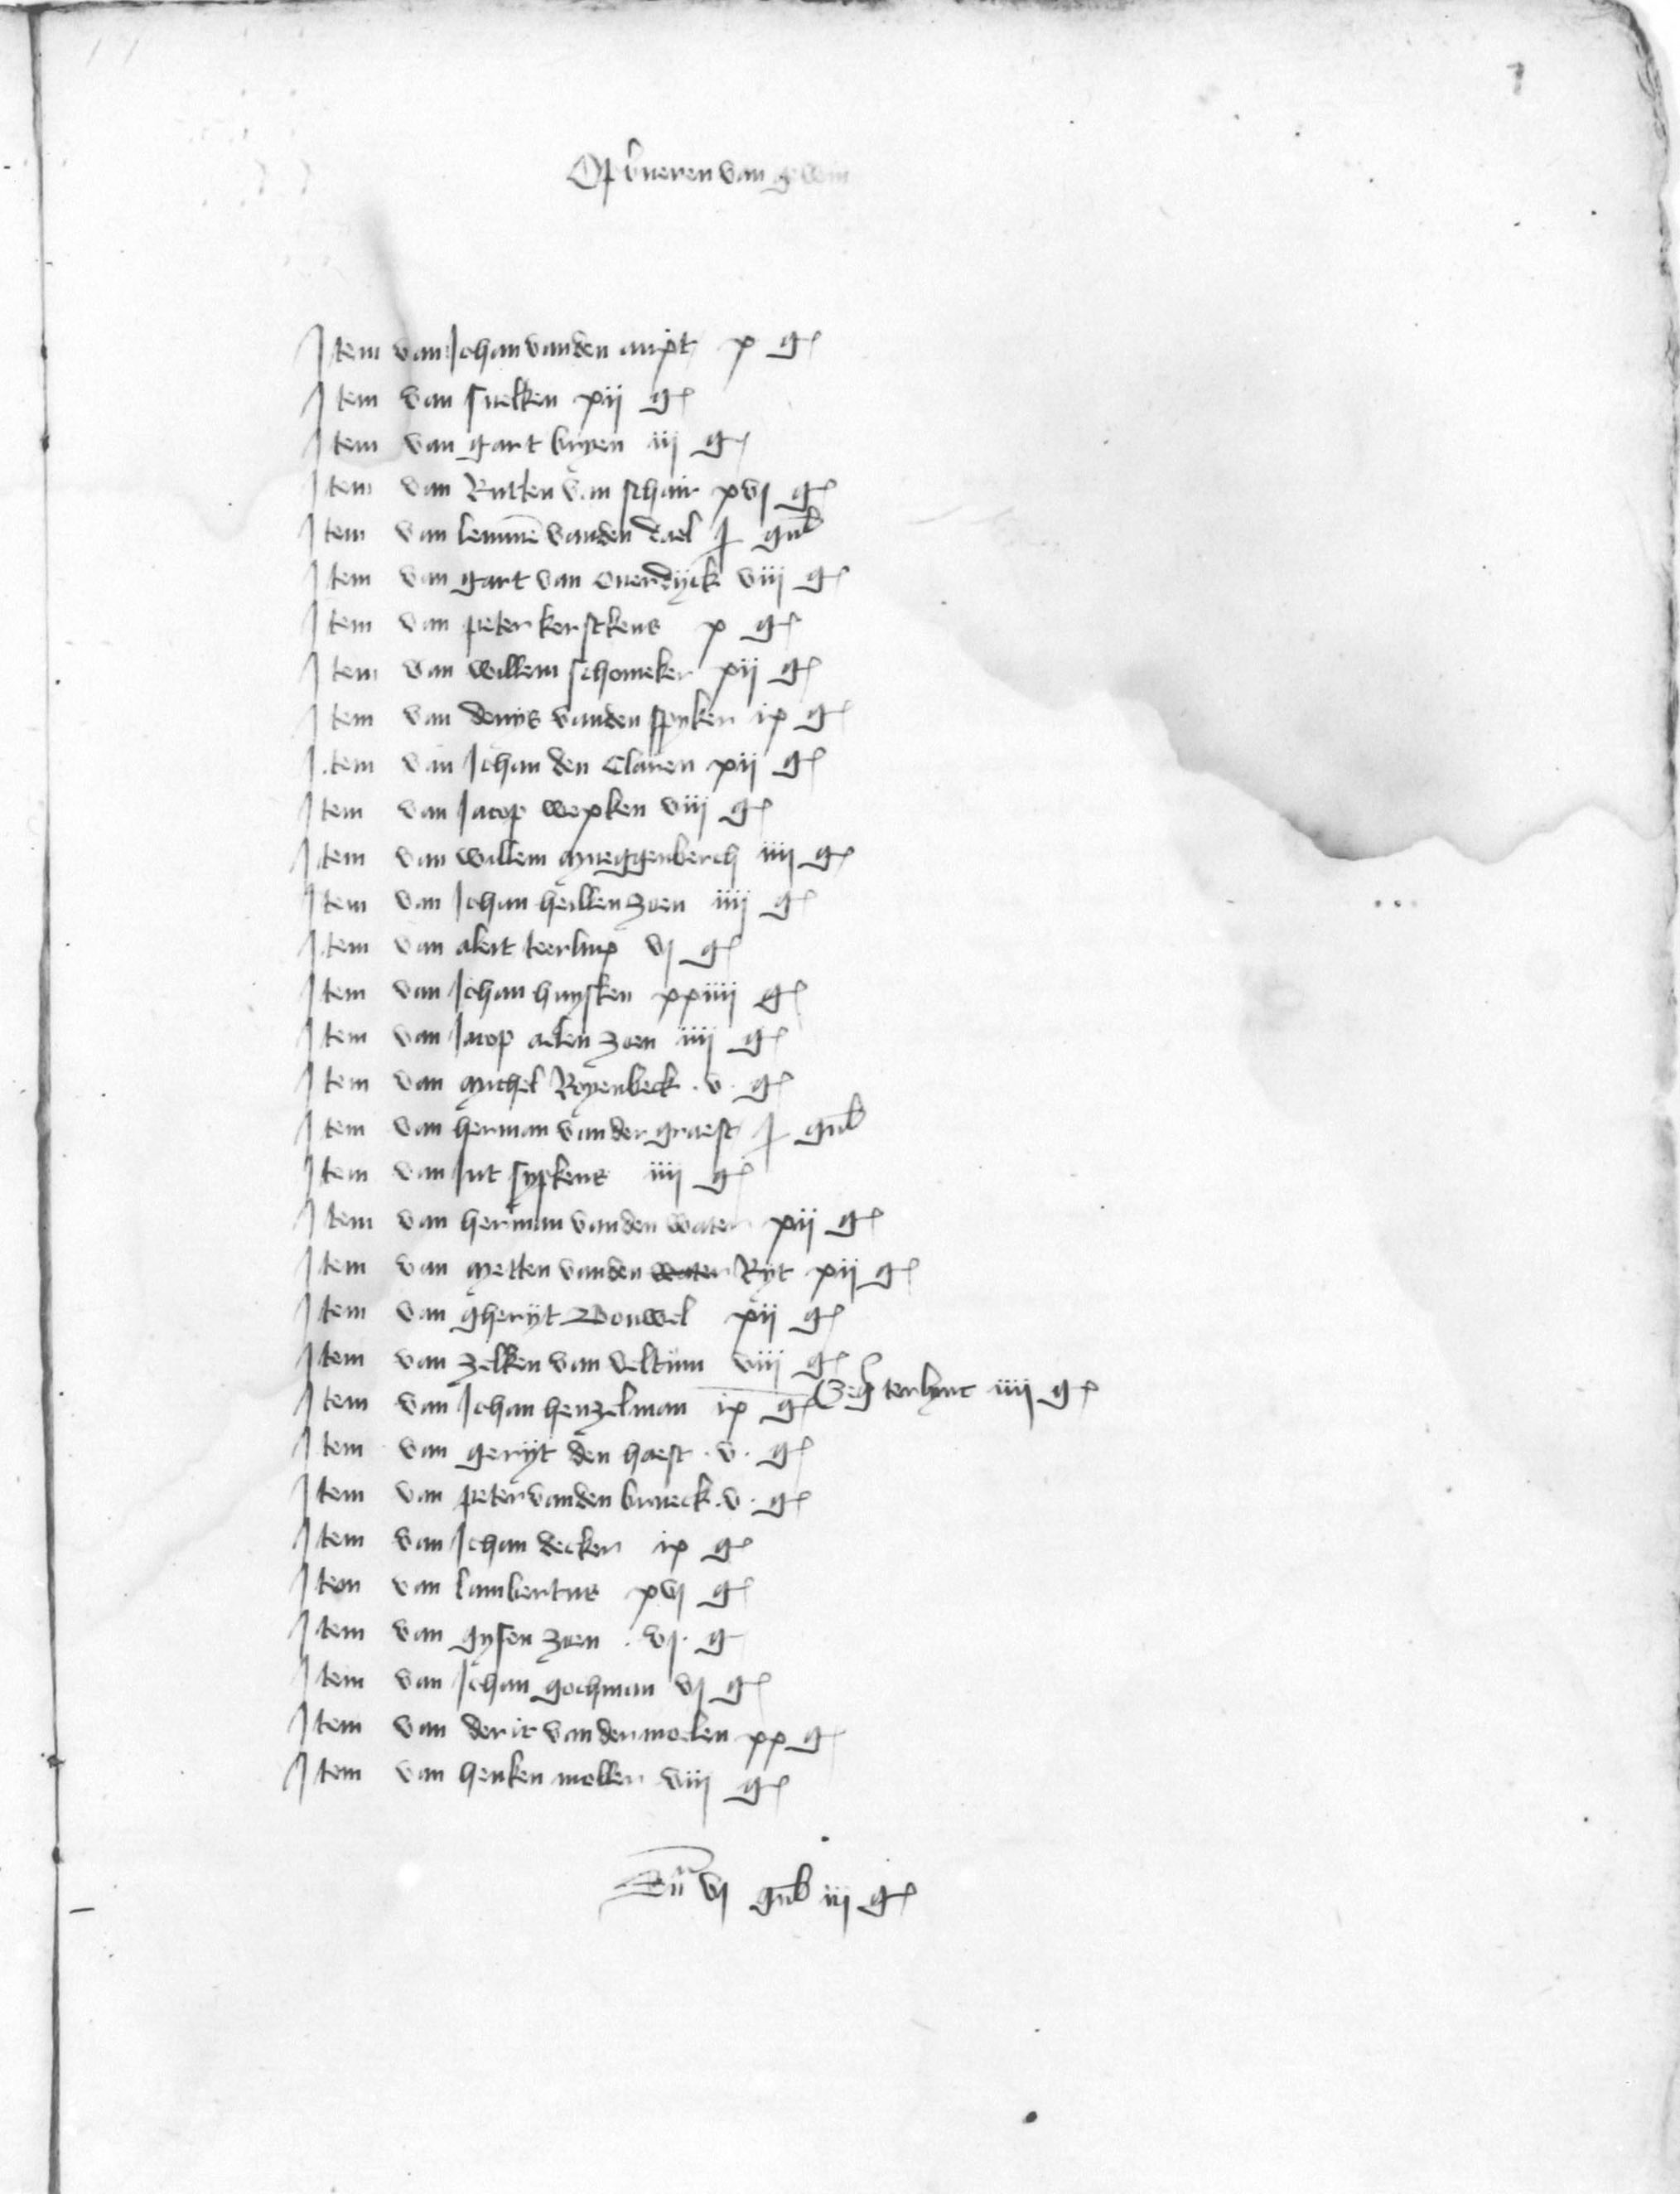 7
Opbueren van gewin
Item van Johan vanden aixpt x g
Item van snelken xij g
Item van gart bryen iij g
Item van Rutten van schair xvj g
Item van lemme vanden dael j guld
Item van gart van Ouerdijck viij g
Item van peter kersckens x g
Item van willem schomeker xij g
Item van denys vanden spyker ix g
Item van Johan den Claren xij g
Item van Jacop wexken viij g
Item van willem mueggenberch iiij g
Item van Johan heillen zoen iiij g
Item van alert teerlinx vj g
Item van Johan huysken xxiiij g
Item van Jacop aelen zoen iiij g
Item van Michel Royenbeck . v . g
Item van herman vander graeft j guld
Item van Jut sypkens iiij g
Item van herman vanden water xij g
Item van Metten vanden water Ryt xij g
Item van gheryt Vouwel xij g
Item van zelken van veltum viij g
Item van Johan henzelman ix g Geq terlync iiij g
Item van geryt den haest . v . g
Item van peter vanden brueck . v . g
Item van Johan decker ix g
Item van lambertus xvj g
Item van gysen zoen . vj . g
Item van Johan gochman vj g
Item van deric vander moelen xx g
Item van henken moller viij g
Su vj guld iij g